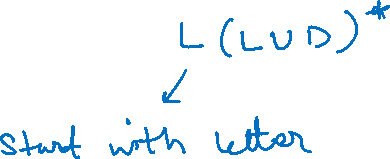 L (L U D)*
Start with letter